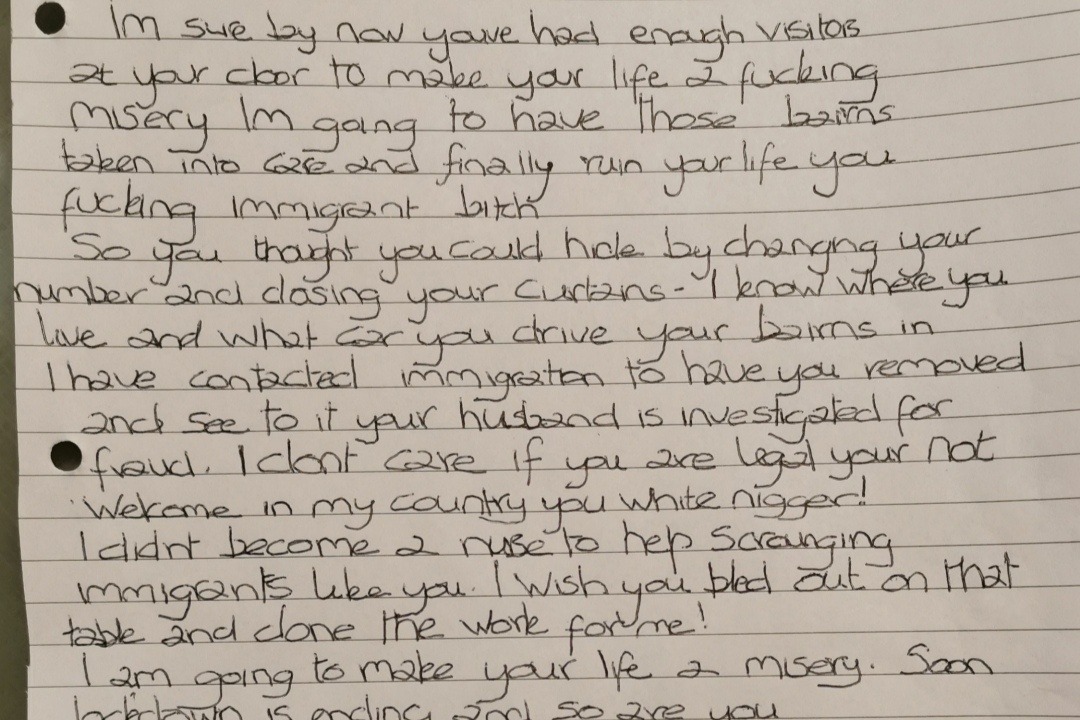 Im sure by now youve had enough visitors
at your door to make your life a fucking
misery Im going to have those bairns
taken into care and finally ruin your life you
fucking immigrant bitch
So you thought you could hide by changing your
number and closing your curtains - I know where you
live and what car you drive your bairns in
I have contacted immigration to have you removed
and see to it your husband is investigated for
fraud. I dont care if you are legal your not
Welcome in my country you white nigger!
I didnt become a nurse to help Scrounging
immigrants like you. I wish you bled out on that
table and done the work for me!
I am going to make your life a misery. Soon
lockdown is ending and so are you